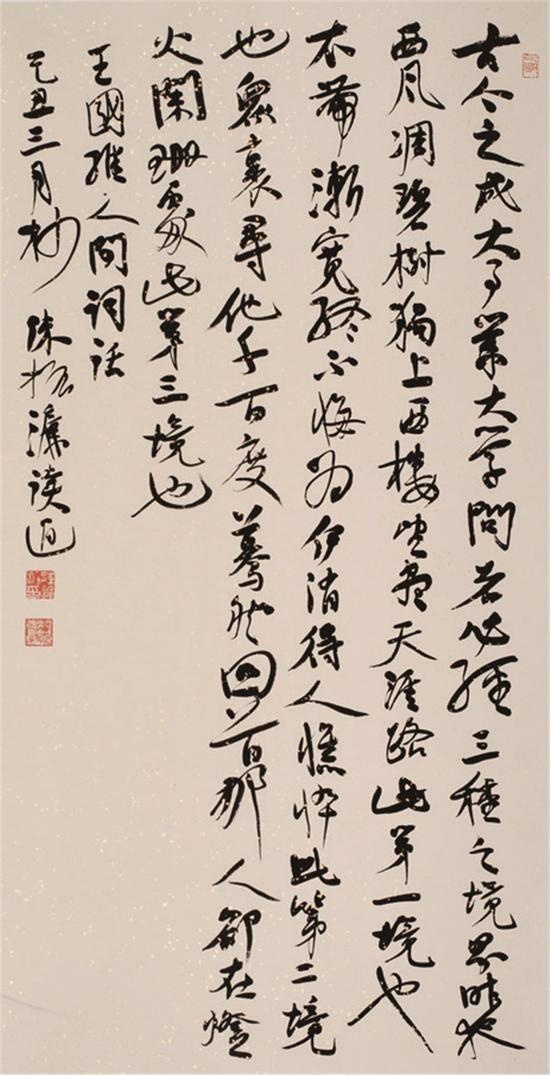 古今之成大事業大学問者必經三種之境界昨夜
西風凋碧樹獨上西樓望盡天涯路此第一境也
衣帶漸寬終不悔為伊消得人憔悴此第二境
也眾裏尋他千百度驀然回首那人卻在燈
火闌珊處此第三境也
王國維人間詞話
己丑三月杪 陳振濂讀